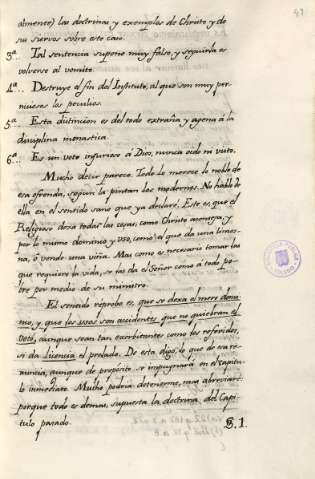 47
almente) las doctrinas y exemplos de Christo y de
su siervos sobre este caso.
3ª. Tal sentencia supone muy falso, y seguirla es
volverse al vomito.
4ª. Destruye el fin del Instituto, al que son muy per
niciosos los peculios.
5ª. Esta distincion es del todo extraña y agena á la
disciplina monastica.
6ª. Es un voto injurioso á Dios, nunca oido ni visto.
Mucho decir parece. Todo lo merece lo noble de
esa ofrenda, segun la pintan los modernos. No hablo de
ella en el sentido sano que ya declaré. Este es, que el
Religioso dexa todas las cosas, como Christo aconseja, y
por lo mismo dominio y uso, como el que da una limos-
na, ó vende una viña. Mas como es necesario tomar las
que requiere la vida, se las da el Señor como á todo po-
bre por medio de su ministro.
El sentido reprobo es, que se dexa el mero domi
nio, y que los usos son accidentes que no quiebran el
voto, aunque sean tan exorbitantes como los referidos,
si da licencia el prelado. De esta digo, lo que de esa re-
nuncia, aunque de proposito se impugnará en el capitu-
lo inmediato. Mucho podria detenerme, mas abreviaré:
porque todo es demas, supuesta la doctrina del Capi
tulo pasado. §. 1.